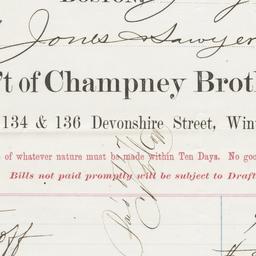 BOSTON,
Jones & Sawyer
't of Champney Broth
134 & 136 Devonshire Street, Win
of whatever nature must be made within Ten Days. No goo
Bills not paid promptly will be subject to Draft
off